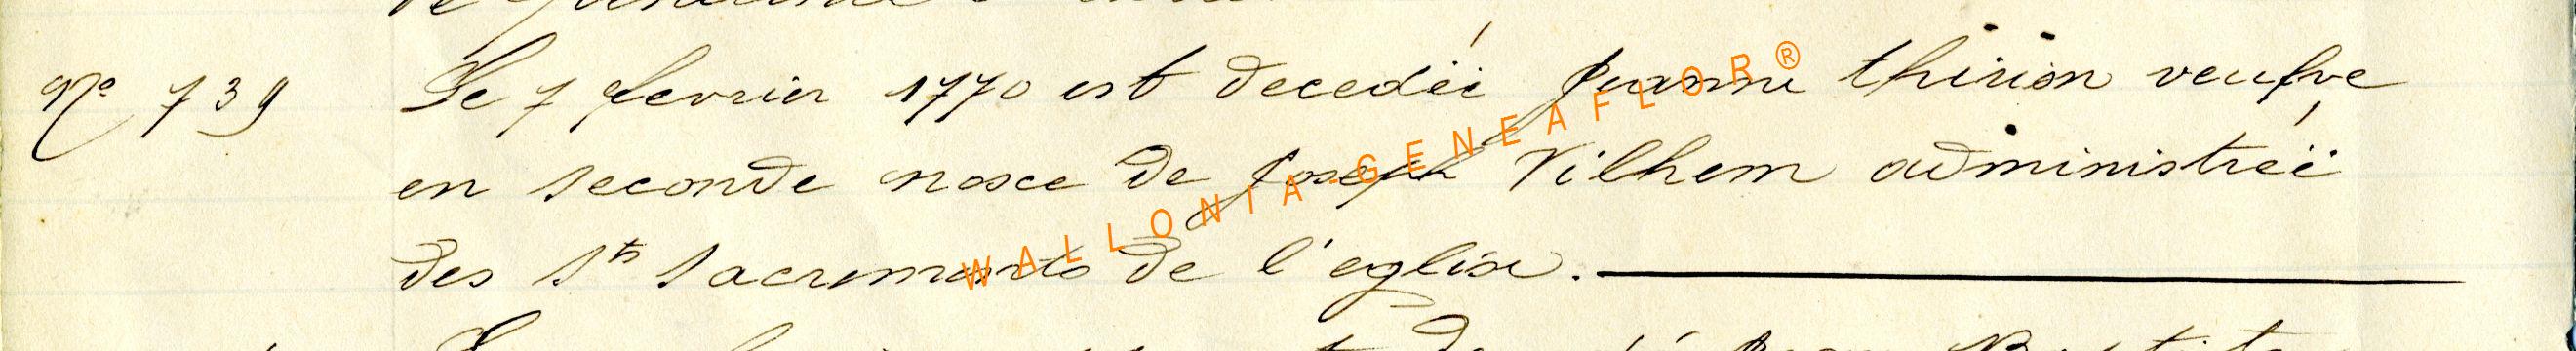 Nº 739 Le 7 fevrier 1770 est decedéé Jeanne thirion veufve
en seconde nosce de Joseph Vilhem administréé
des Sts Sacrements de l'eglise.
WALLONIA-GENEAFLOR®